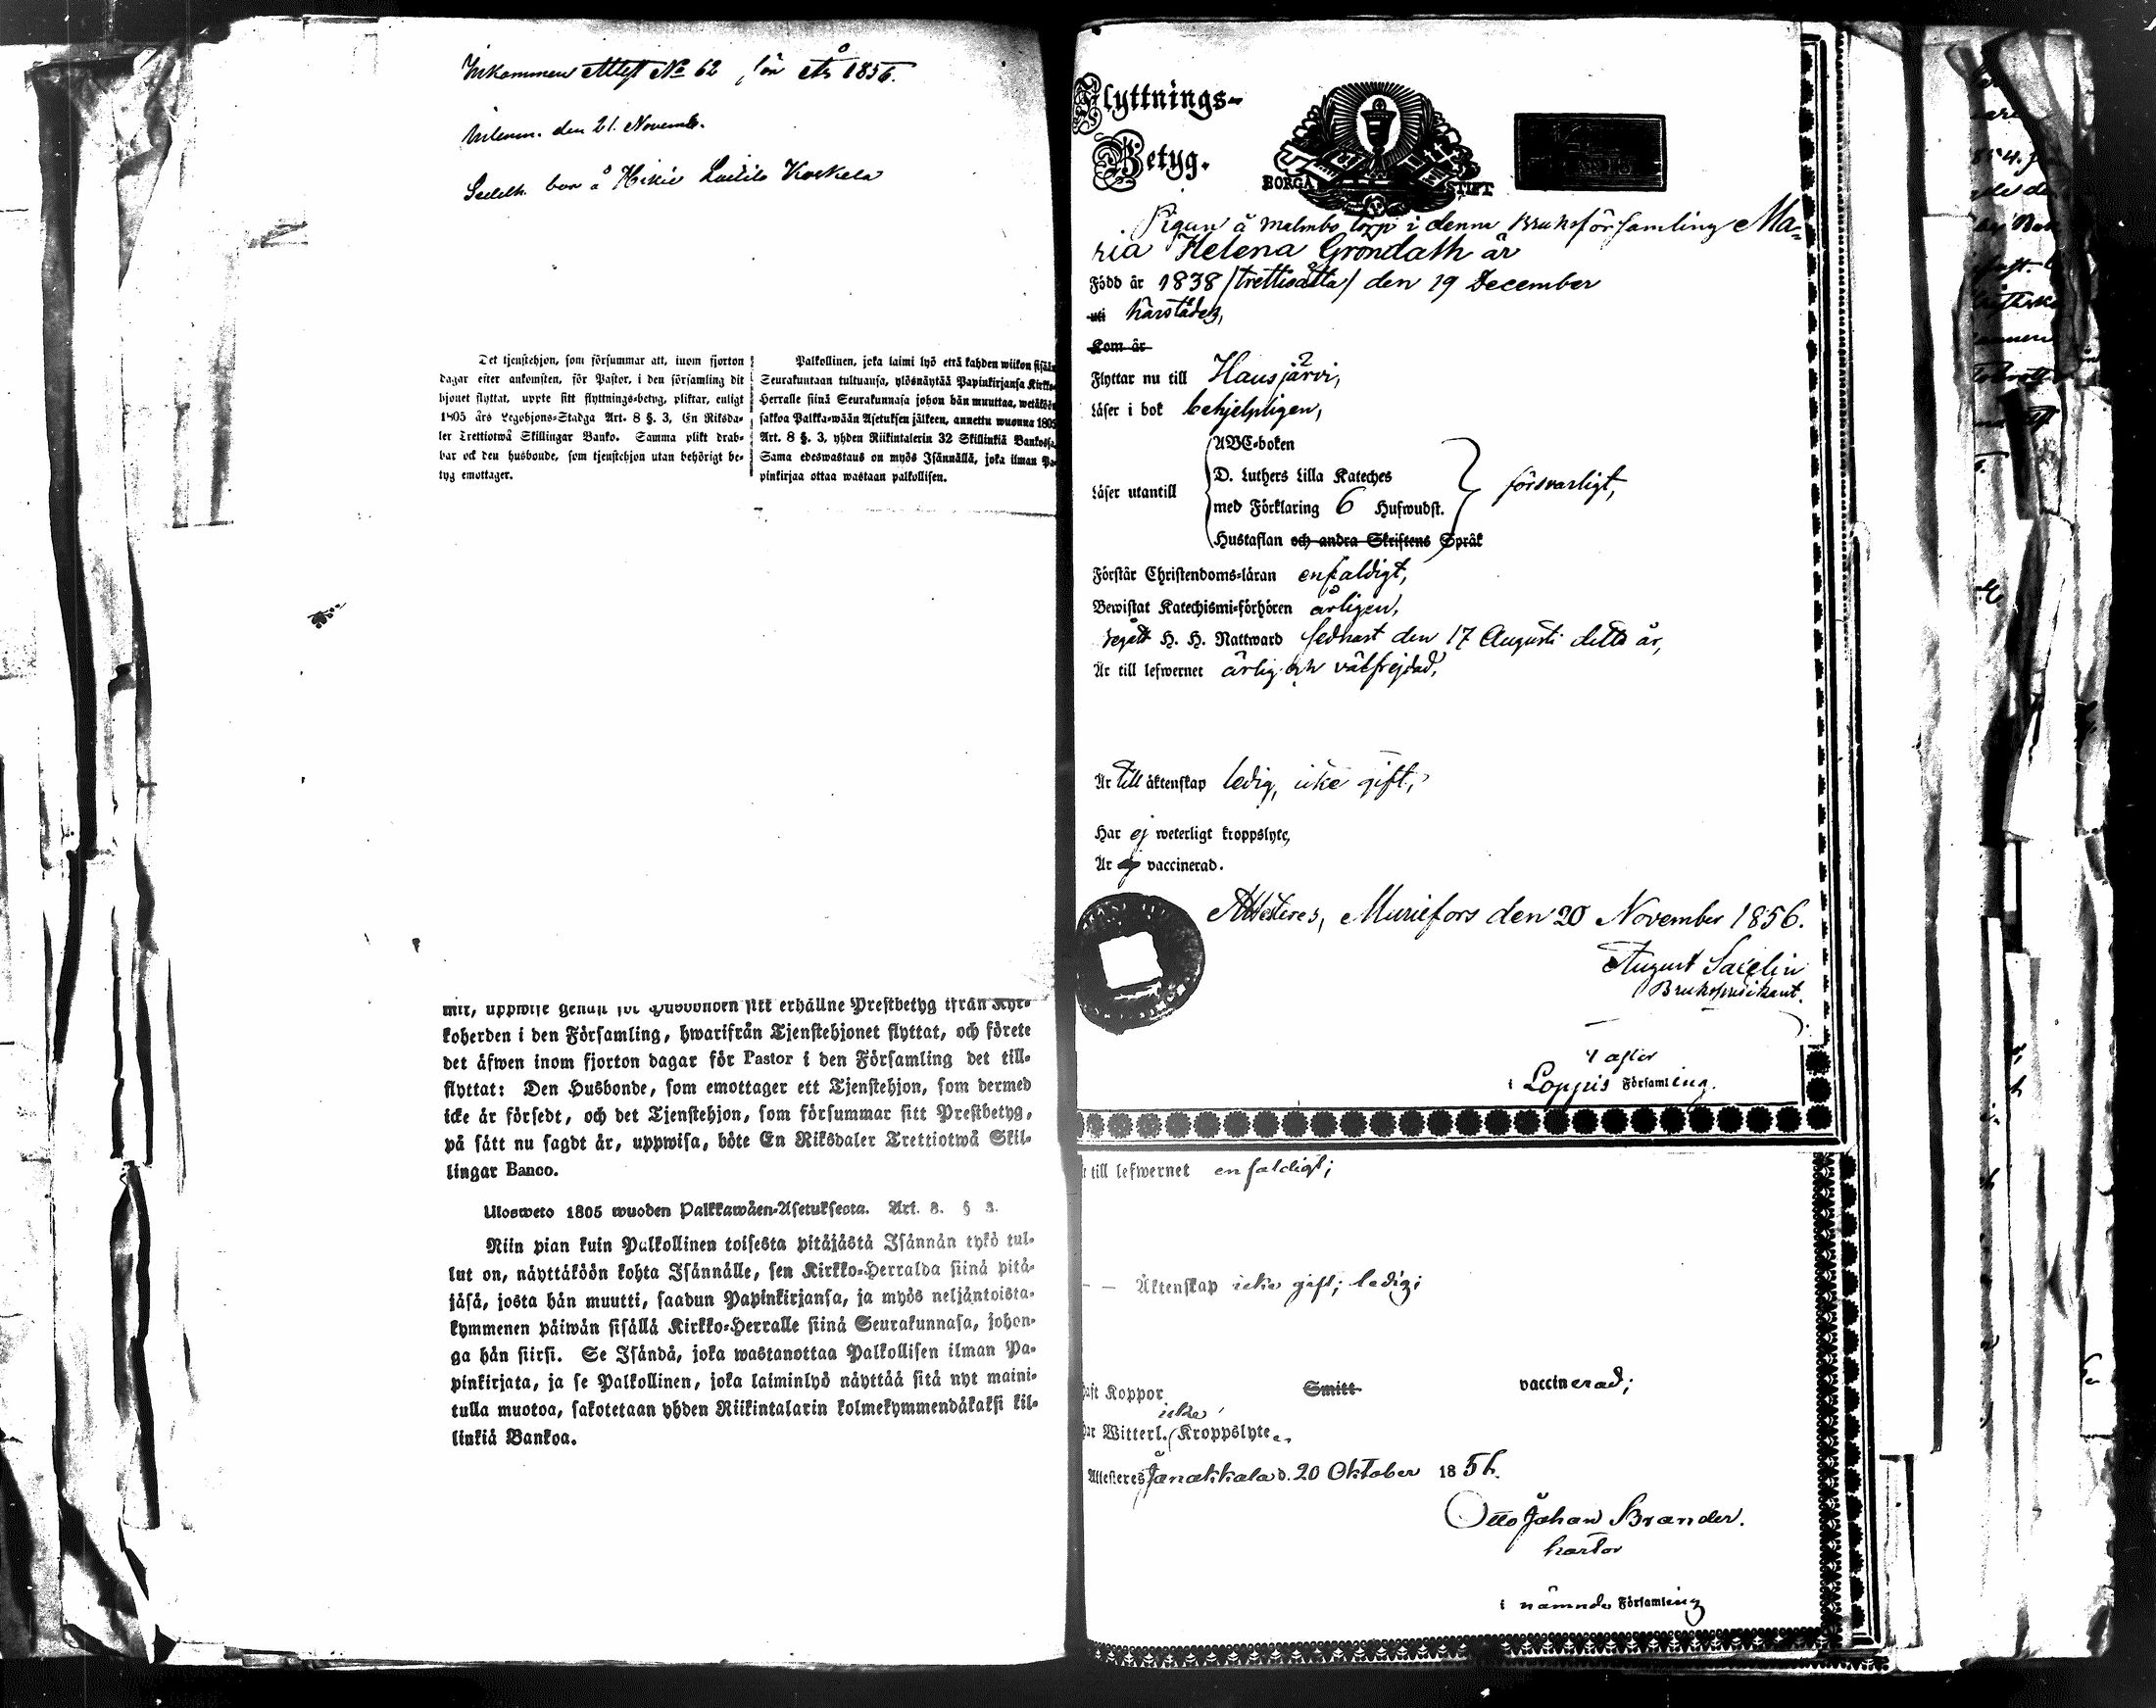 Inkommen Attest No 62 för År 1856.
den 21. Novemb.
Sedelh. bor å Hikiä Koskela
Det tjenstehjon, som försummar att, inom fjorton
dagar efter ankomsten, för Pastor, i den församling dit
hjonet flyttat, uppte sitt flyttnings-betyg, pliktar, enligt
1805 års Legohjons-Stadga Art. 8 §. 3, En Riksda-
ler Trettiotwå Skillingar Banko. Samma plikt drab-
bar ock den husbonde, som tjenstehjon utan behörigt be-
tyg emottager.
Palkollinen, joka laimi lyö että kahden wiikon sisäl
Seurakuntaan tultuansa, ylösnäytää Papinkirjansa Kirkko-
Herralle siinä Seurakunnasa johon hän muuttaa, wetäköön
sakkoa Palkka-wään Asetuksen jälkeen, annettu wuonna 1805
Art. 8 §. 3, yhden Riikintalerin 32 Skillinkiä Bankossa.
Sama edeswastaus on myös Isännällä, joka ilman Pa-
pinkirjaa ottaa wastaan palkollisen.
mit, uppwise genast för Husbonden sitt erhållne Prestbetyg ifrån Kyr-
koherden i den Församling, hwarifrån Tjenstehjonet flyttat, och förete
det äfwen inom fjorton dagar för Pastor i den Församling det till-
flyttat: Den Husbonde, som emottager ett Tjenstehjon, som dermed
icke är försedt, och det Tjenstehjon, som försummar sitt Prestbetyg,
på sätt nu sagdt är, uppwisa, böte En Riksdaler Trettiotwå Skil-
lingar Banco.
Ulosweto 1805 wuoden Palkkawäen-Asetuksesta. Art. 8. § 3.
Niin pian kuin Palkollinen toisesta pitäjästä Isännän tykö tul-
lut on, näyttäköön kohta Isännälle, sen Kirkko-Herralda siinä pitä-
jäsä, josta hän muutti, saadun Papinkirjansa, ja myös neljäntoista-
kymmenen päiwän sisällä Kirkko-Herralle siinä Seurakunnasa, johon-
ga hän siirsi. Se Isändä, joka wastanottaa Palkollisen ilman Pa-
pinkirjata, ja se Palkollinen, joka laiminlyö näyttää sitä nyt maini-
tulla muotoa, sakotetaan yhden Riikintalarin kolmekymmendäkaksi kil-
linkiä Bankoa.
Flyttnings-
Betyg.
BORGÅ STIFT
Pigan å Malmbo torp i denna Bruksförsamling Ma-
ria Helena Gröndahl är
Född år 1838 /trettioåtta/ den 19 December
uti härstädes,
Kom år
Flyttar nu till Hausjärvi,
Läser i bok behjelpligen,
Läser utantill
ABC-boken
D. Luthers Lilla Kateches
med Förklaring 6 Hufwudst.
Hustaflan och andra Skriftens Språk
försvarligt,
Förstår Christendoms-läran enfaldigt,
Bewistat Katechismi-förhören årligen,
Begått H. H. Nattward sednast den 17 Augusti detta år,
Är till lefwernet ärlig och välfrejdad,
Är till äktenskap ledig, icke gift,
Har ej weterligt kroppslyte,
Är vaccinerad.
Attesteres, Mariefors den 20 November 1856.
August
Brukspredikant.
i Loppis Församling.
till lefwernet enfaldigt;
— — Äktenskap icke gift; ledig;
Haft Koppor Smitt vaccinerad;
icke
Har Witterl. Kroppslyte.
Attesteres Janakkala d. 20 Oktober 1856.
Otto Johan Brander.
Pastor
i nämnde Församling